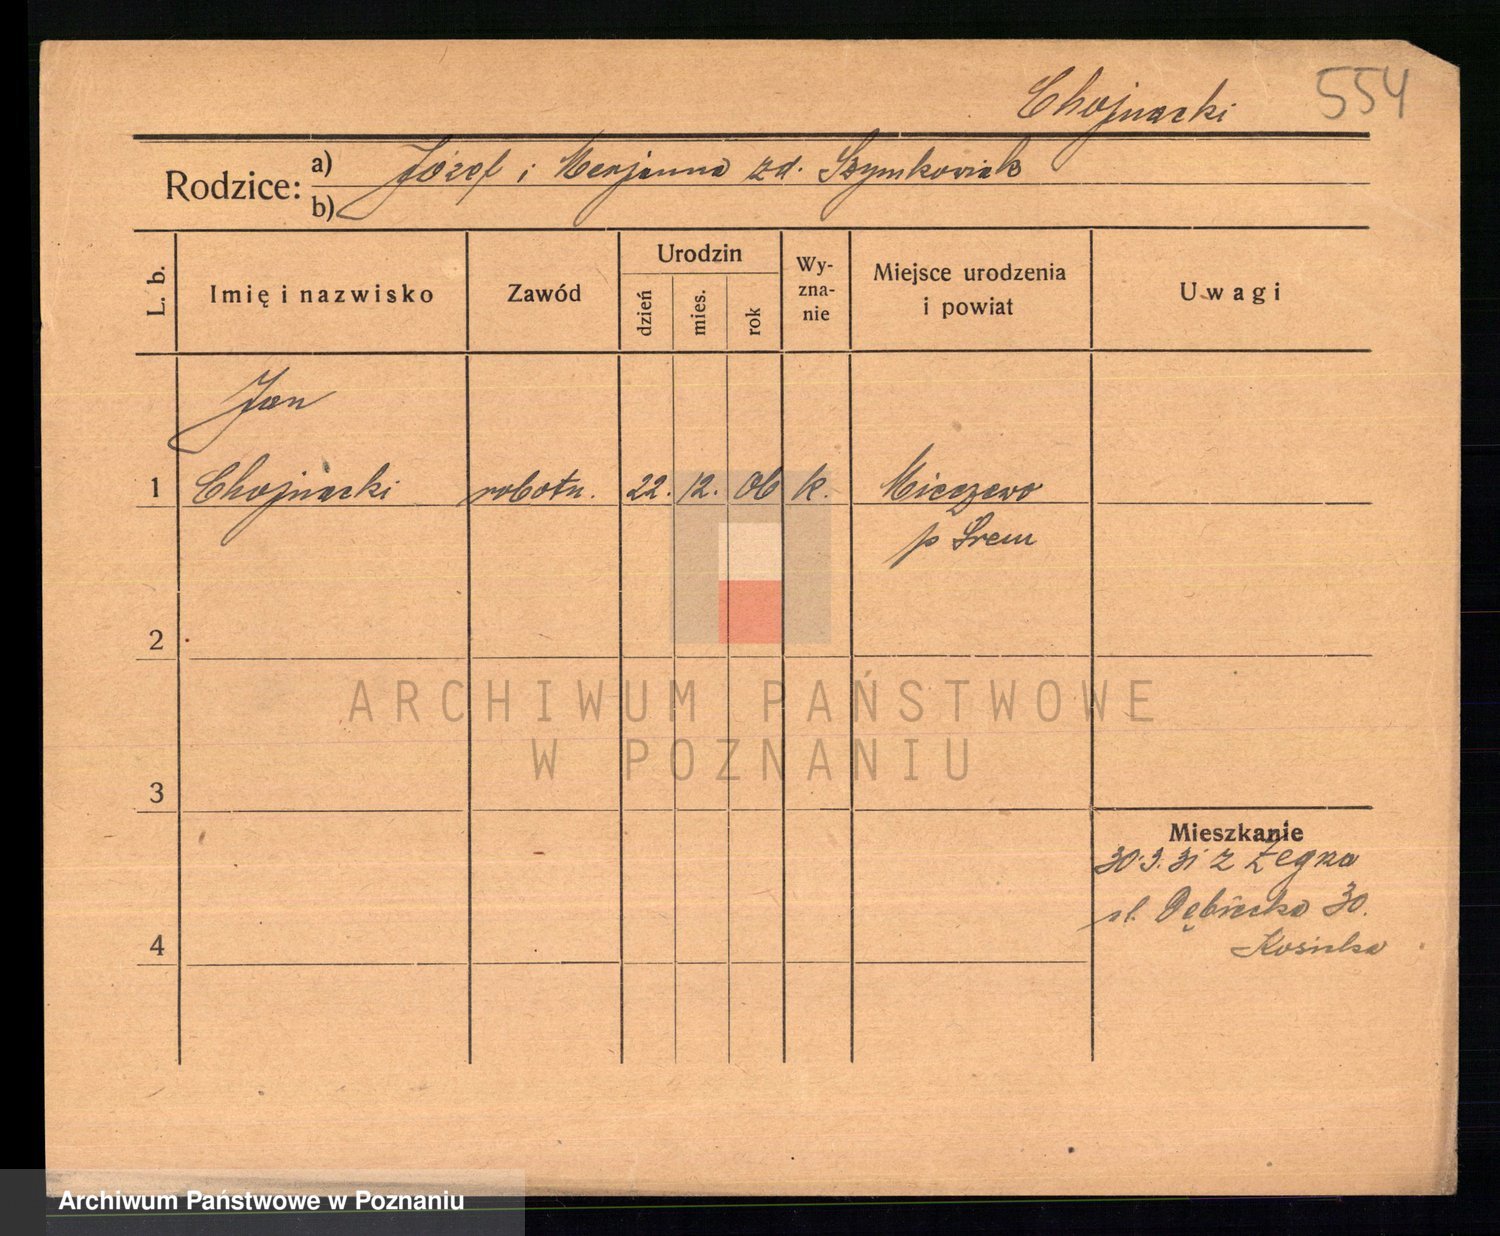 Chojnacki 554
Rodzice: a) Józef i Marjanna zd. Szymkowiak
b)
L. b. Imię i nazwisko Zawód Urodzin dzień mies. rok Wy-
zna-
nie Miejsce urodzenia
i powiat Uwagi
Jan
1 Chojnacki robotn. 22. 12. 06 k. Mieczewo
p Śrem
2
ARCHIWUM PAŃSTWOWE
W POZNANIU
3
Mieszkanie
30.9.31 z Żegrza
ul. Dębiecka 30.
4
Archiwum Państwowe w Poznaniu